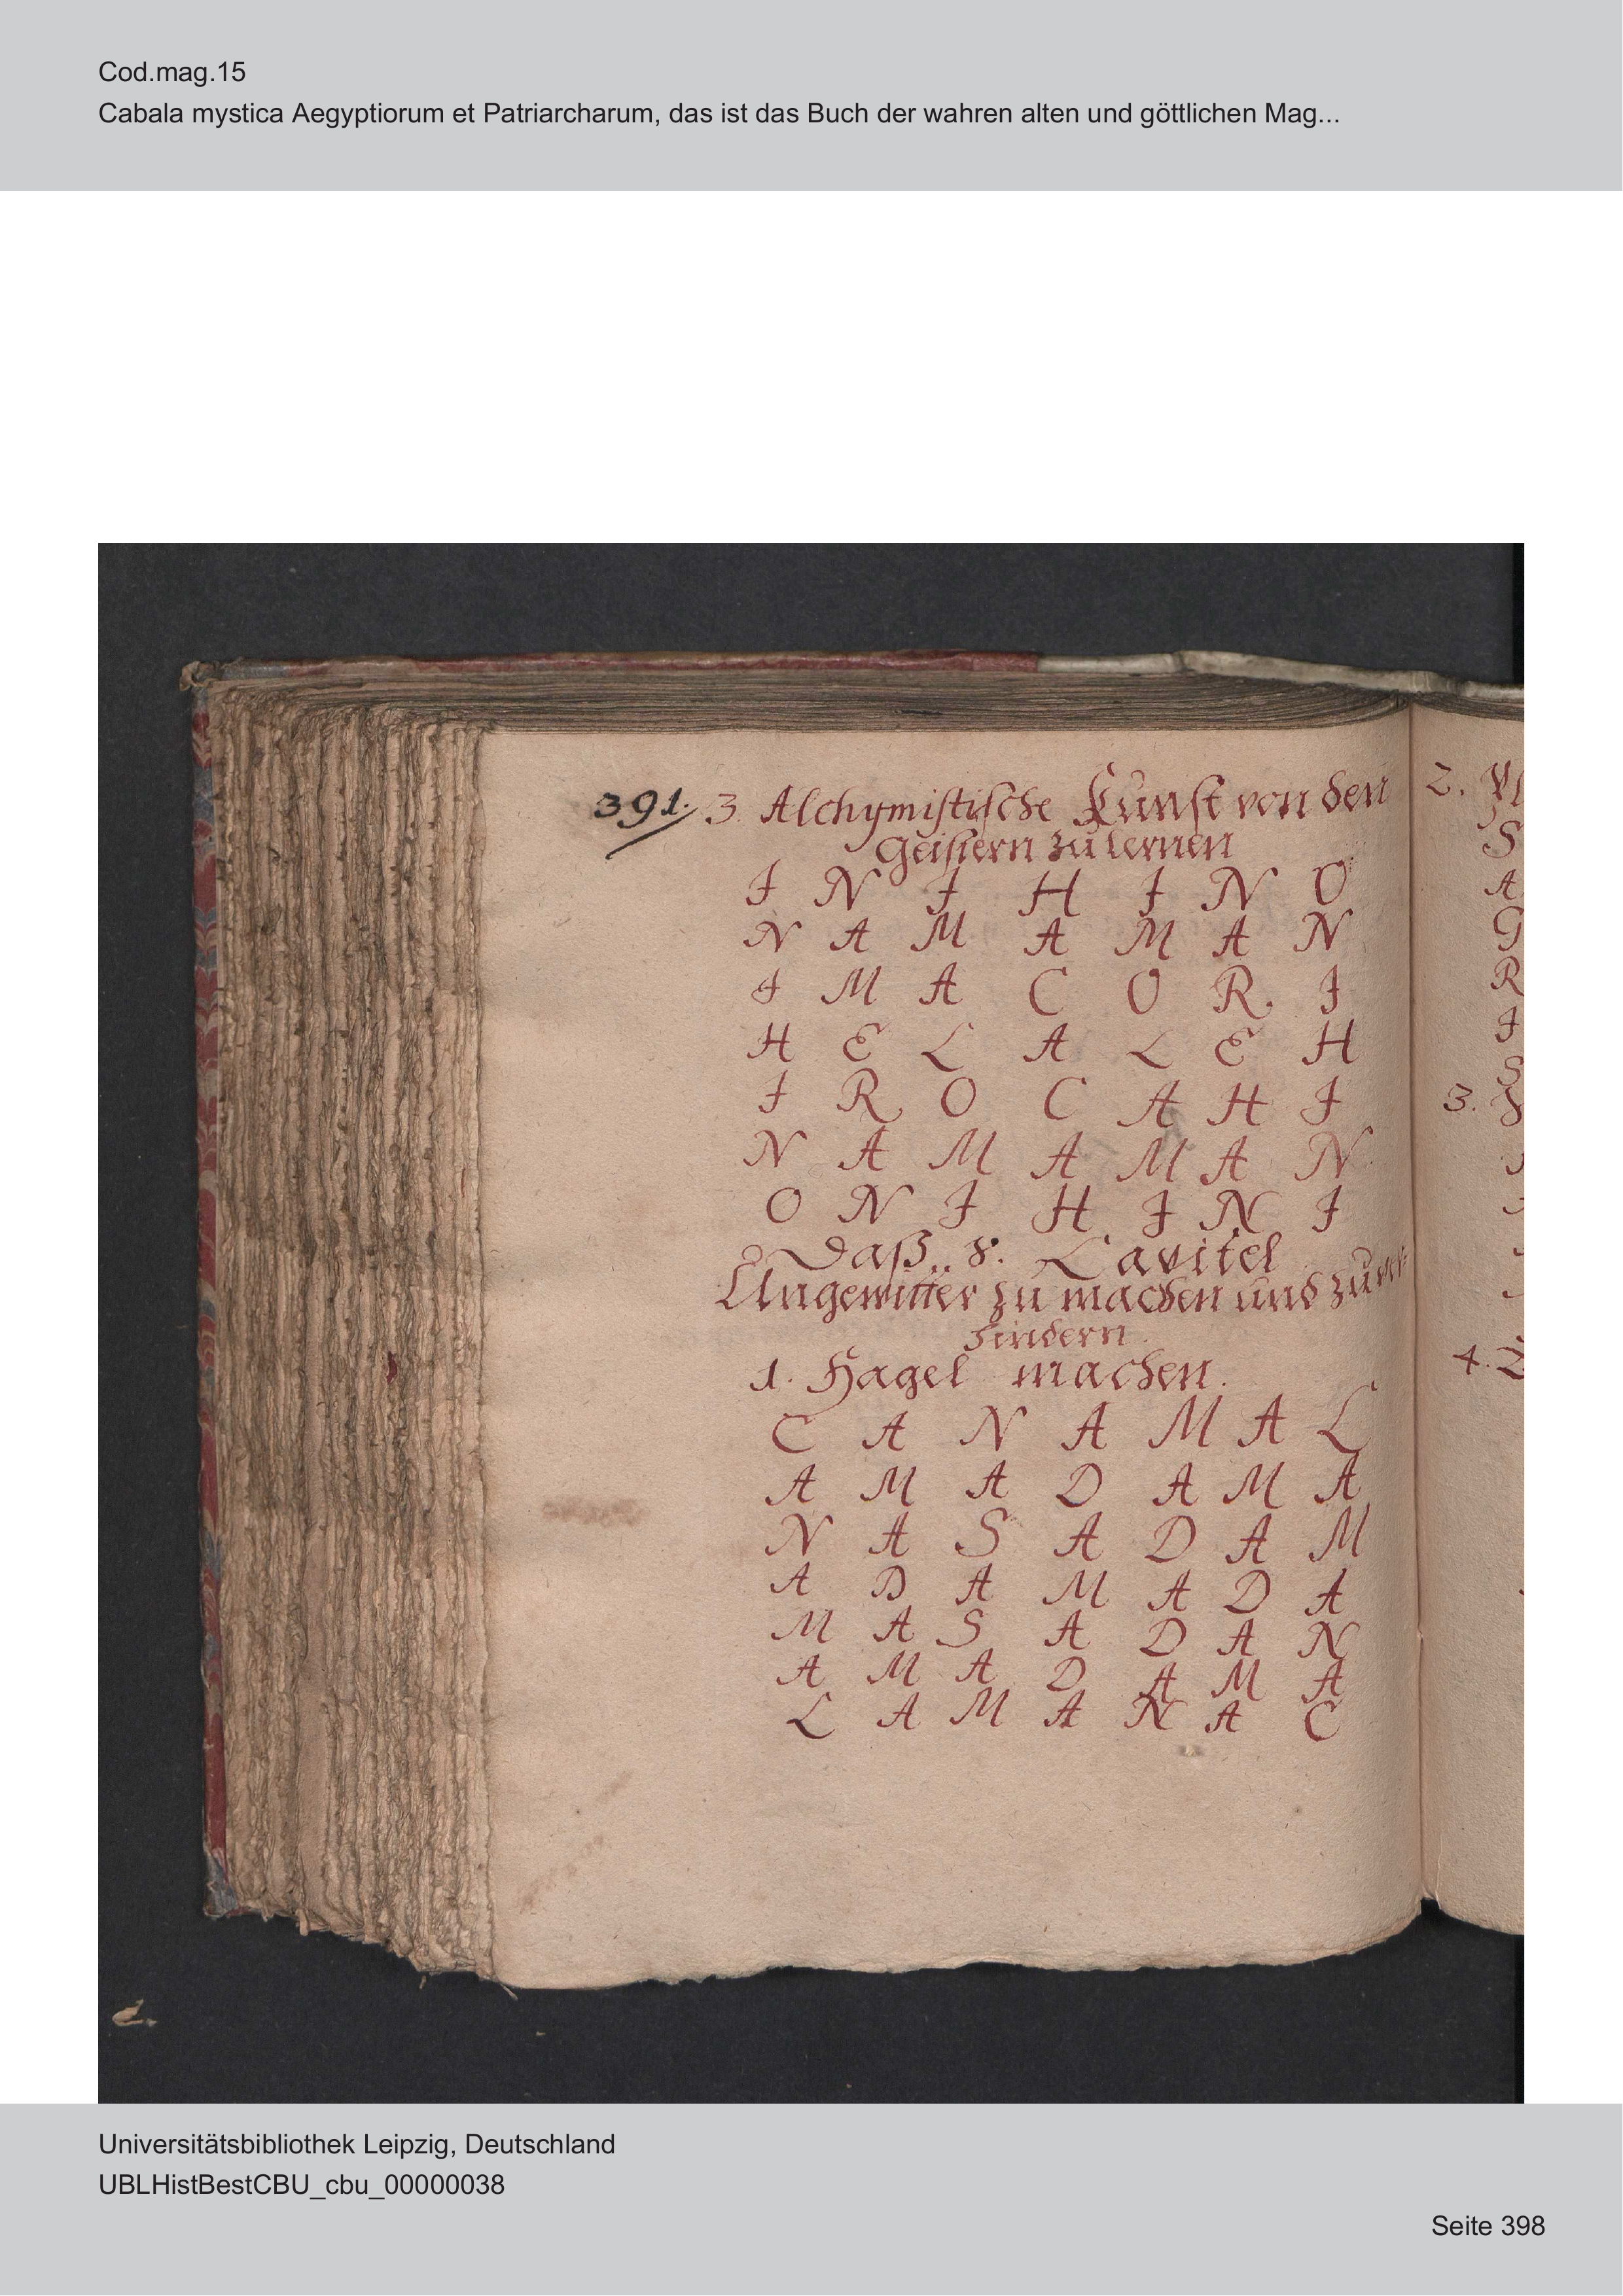 Cod.mag.15
Cabala mystica Aegyptiorum et Patriarcharum, das ist das Buch der wahren alten und göttlichen Mag...
391. 3. Alchymistische Kunst von den
Geistern zu lernen
I N I H I N O
N A M A M A N
I M A C O R I
H E L A L E H
I R O C A H I
N A M A M A N
O N I H I N I
Daß 8. Capitel
Ungewitter zu machen und zu ver
hindern
1. Hagel machen.
C A N A M A L
A M A D A M A
N A S A D A M
A D A M A D A
M A S A D A N
A M A D A M A
L A M A N A C
2.
S
A
G
R
I
S
3.
4.
Universitätsbibliothek Leipzig, Deutschland
UBLHistBestCBU_cbu_00000038
Seite 398